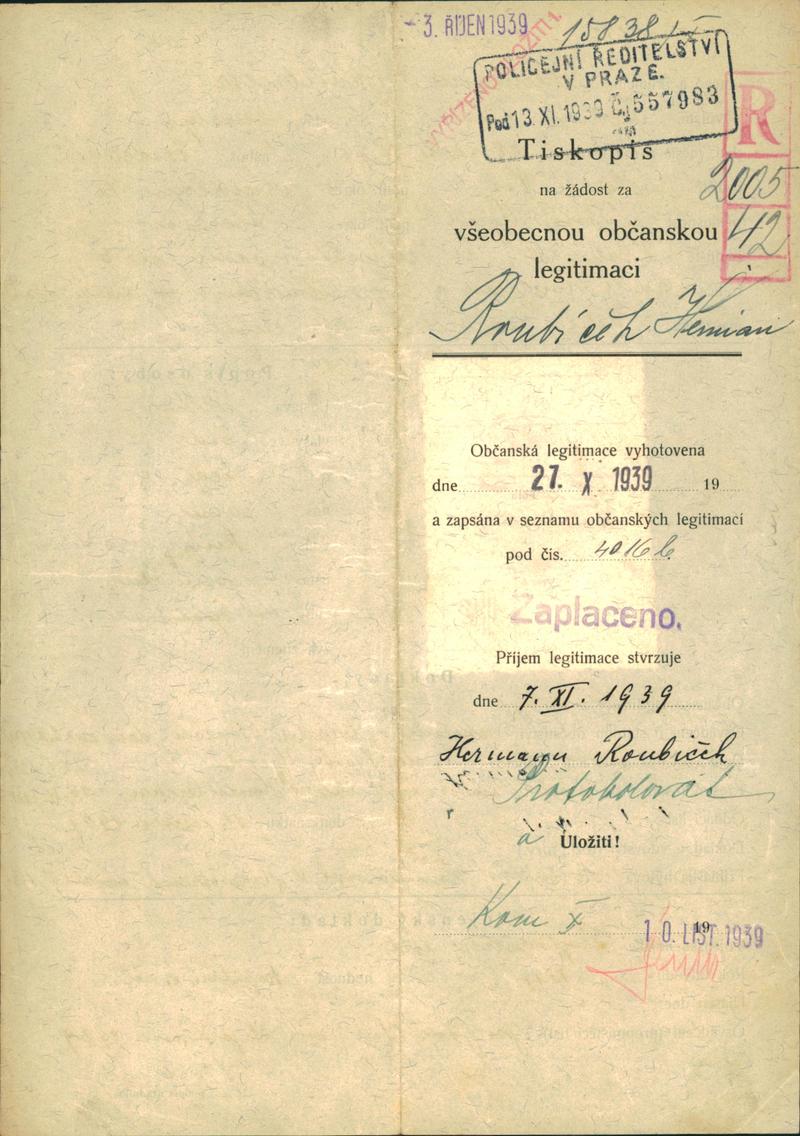 - 3. ŘÍJEN 1939
15838
POLICEJNÍ ŘEDITELSTVÍ
V PRAZE.
Pod 13. XI. 1939 Čj 557983
R
Tiskopis
2005
na žádost za
všeobecnou občanskou
42
legitimaci
Roubíček Herman
Občanská legitimace vyhotovena
dne 27. X 1939 19
a zapsána v seznamu občanských legitimací
pod čís.
Zaplaceno.
Příjem legitimace stvrzuje
dne 7. XI. 1939
Hermann Roubíček
Protokolovat
a Uložiti!
Kom X
10. LIST. 1939
19